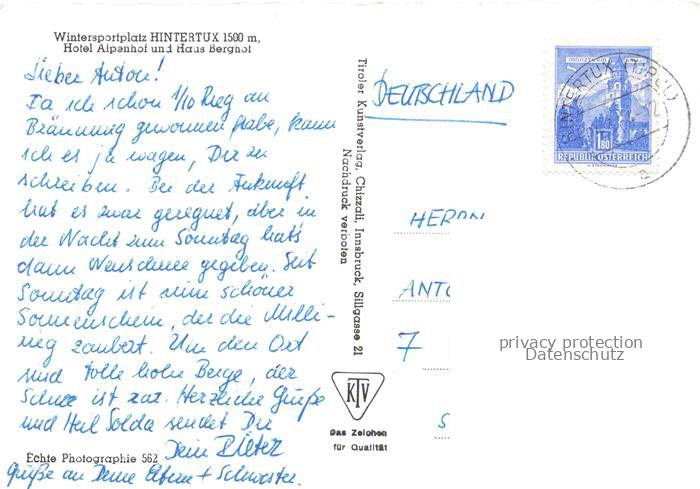 Wintersportplatz HINTERTUX 1500 m,
Hotel Alpenhof und Haus Berghof
Lieber Anton!
Da ich schon 1/10 an
Bräunung gewonnen habe, kann
ich es ja wagen, Dir zu
schreiben. Bei der Ankunft
hat es zwar geregnet, aber in
der Nacht zum Sonntag hat's
dann Neuschnee gegeben. Seit
Sonntag ist nun schöner
Sonnenschein, der die
zaubert. Um den Ort
sind tolle hohe Berge, der
Schnee ist Herzliche Grüße
und Heil sendet Dir
Dein Dieter
Grüße an Deine Eltern + Schwester.
Echte Photographie 562
Tiroler Kunstverlag, Chizzali, Innsbruck, Sillgasse 21
Nachdruck verboten
KTV
Das Zeichen
für Qualität
DEUTSCHLAND
HINTERTUX (TIROL)
1.80
REPUBLIK ÖSTERREICH
HERRN
ANTO
7
S
privacy protection
Datenschutz